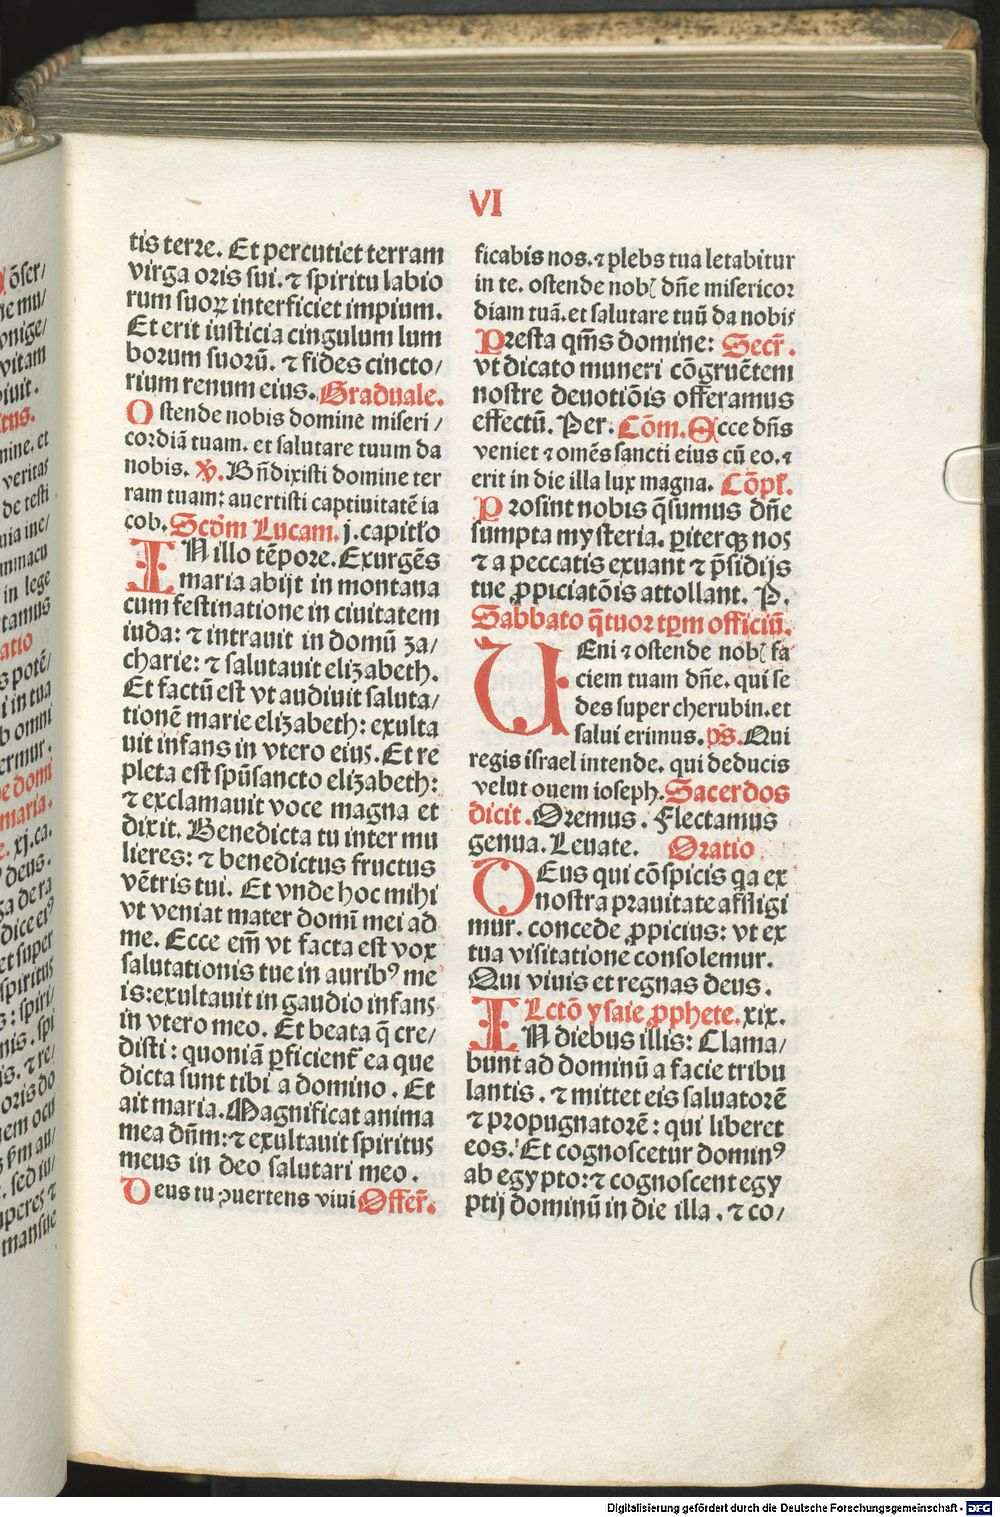 VI
tis terre. Et percutiet terram
virga oris sui. ⁊ spiritu labio
rum suoꝝ interficiet impium.
Et erit iusticia cingulum lum
borum suorū. ⁊ fides cincto/
rium renum eius. Graduale.
Ostende nobis domine miseri/
cordiā tuam. et salutare tuum da
nobis. ℣. Bn̄dixisti domine ter
ram tuam: auertisti captiuitatē ia
cob. Scd̄m Lucam. j. capitło
IN illo tēpore. Exurgēs
maria abijt in montana
cum festinatione in ciuitatem
iuda: ⁊ intrauit in domū za/
charie: ⁊ salutauit elizabeth.
Et factū est vt audiuit saluta/
tionē marie elizabeth: exulta
uit infans in vtero eius. Et re
pleta est spūsancto elizabeth:
⁊ exclamauit voce magna et
dixit. Benedicta tu inter mu
lieres: ⁊ benedictus fructus
vētris tui. Et vnde hoc mihi
vt veniat mater domī mei ad
me. Ecce em̄ vt facta est vox
salutationis tue in auribꝰ me
is: exultauit in gaudio infans
in vtero meo. Et beata q̄ cre/
disti: quoniā ꝑficient᷑ ea que
dicta sunt tibi a domino. Et
ait maria. Magnificat anima
mea dn̄m: ⁊ exultauit spiritus
meus in deo salutari meo.
Deus tu ꝯuertens viui Offer̄.
ficabis nos. ⁊ plebs tua letabitur
in te. ostende nob̄ dn̄e misericor
diam tuā. et salutare tuū da nobis
Presta qm̄s domine: Secr̄.
vt dicato muneri cōgruētem
nostre deuotiōis offeramus
effectū. Per. Cōm. Ecce dn̄s
veniet ⁊ omēs sancti eius cū eo. ⁊
erit in die illa lux magna. Cōpł.
Prosint nobis q̄sumus dn̄e
sumpta mysteria. ꝑiterqꝫ nos
⁊ a peccatis exuant ⁊ p̄sidijs
tue ꝓpiciatōis attollant. P.
Sabbato q̄tuor tꝑm officiū.
UEni ⁊ ostende nob̄ fa
ciem tuam dn̄e. qui se
des super cherubin. et
salui erimus. ps̄. Qui
regis israel intende. qui deducis
velut ouem ioseph. Sacerdos
dicit. Oremus. Flectamus
genua. Leuate. Oratio
DEus qui cōspicis qa ex
nostra prauitate affligi
mur. concede ꝓpicius: vt ex
tua visitatione consolemur.
Qui viuis et regnas deus.
Lctō ysaie ꝓphete. xix.
IN diebus illis: Clama/
bunt ad dominū a facie tribu
lantis. ⁊ mittet eis saluatorē
⁊ propugnatorē: qui liberet
eos. Et cognoscetur dominꝰ
ab egypto: ⁊ cognoscent egy
ptij dominū in die illa. ⁊ co/
Digitalisierung gefördert durch die Deutsche Forschungsgemeinschaft - DFG